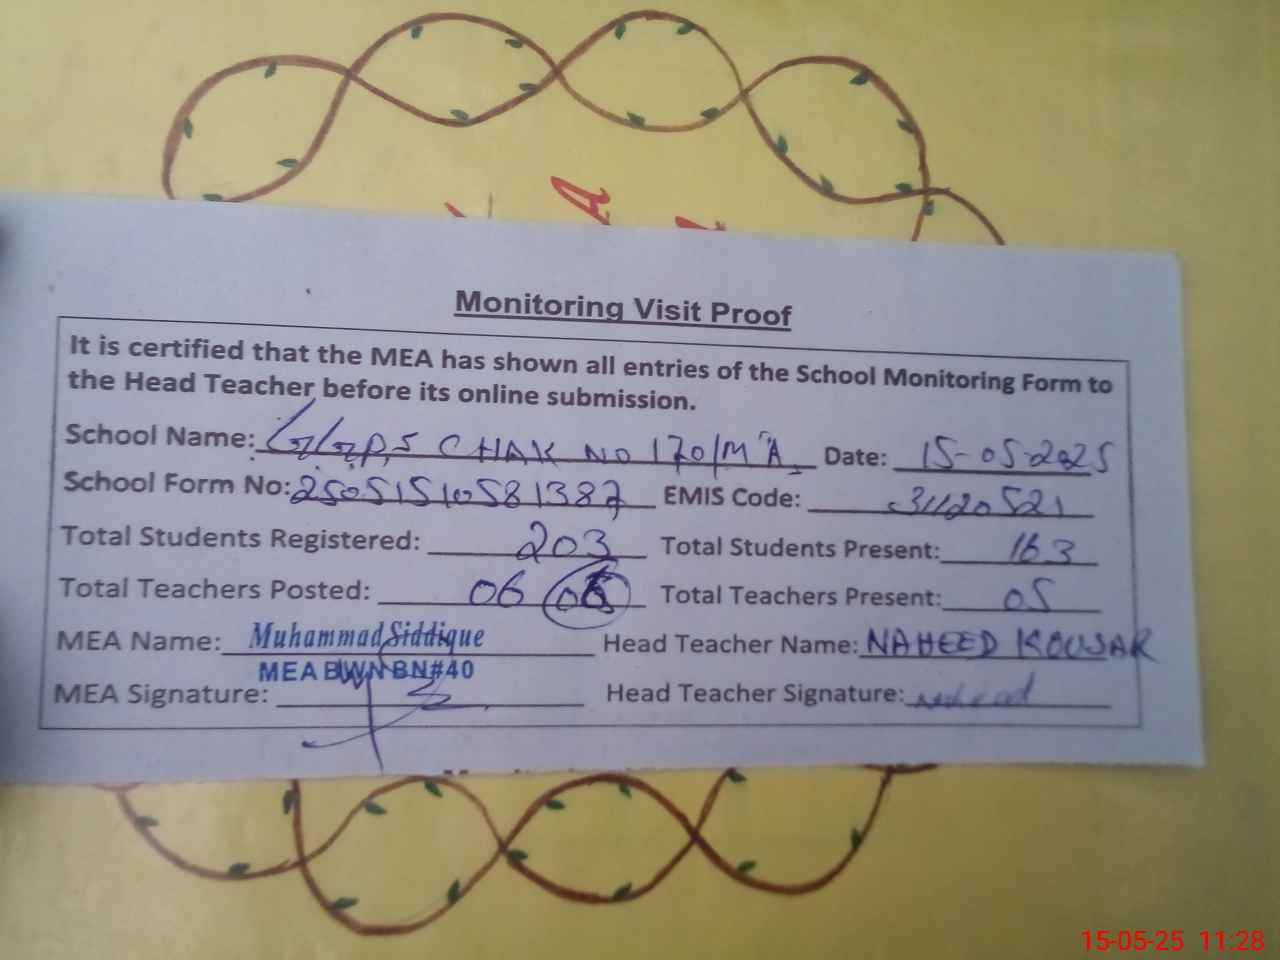 A
Monitoring Visit Proof
It is certified that the MEA has shown all entries of the School Monitoring Form to
the Head Teacher before its online submission.
School Name: G/GPS CHAK NO 170/M"A Date: 15-05-2025
School Form No: EMIS Code: 31120521
Total Students Registered: 203 Total Students Present: 163
Total Teachers Posted: 06 Total Teachers Present: 05
MEA Name: Muhammad Siddique Head Teacher Name: NAHEED KOUSAR
MEA BWN BN#40
MEA Signature: Head Teacher Signature:
15-05-25 11:28